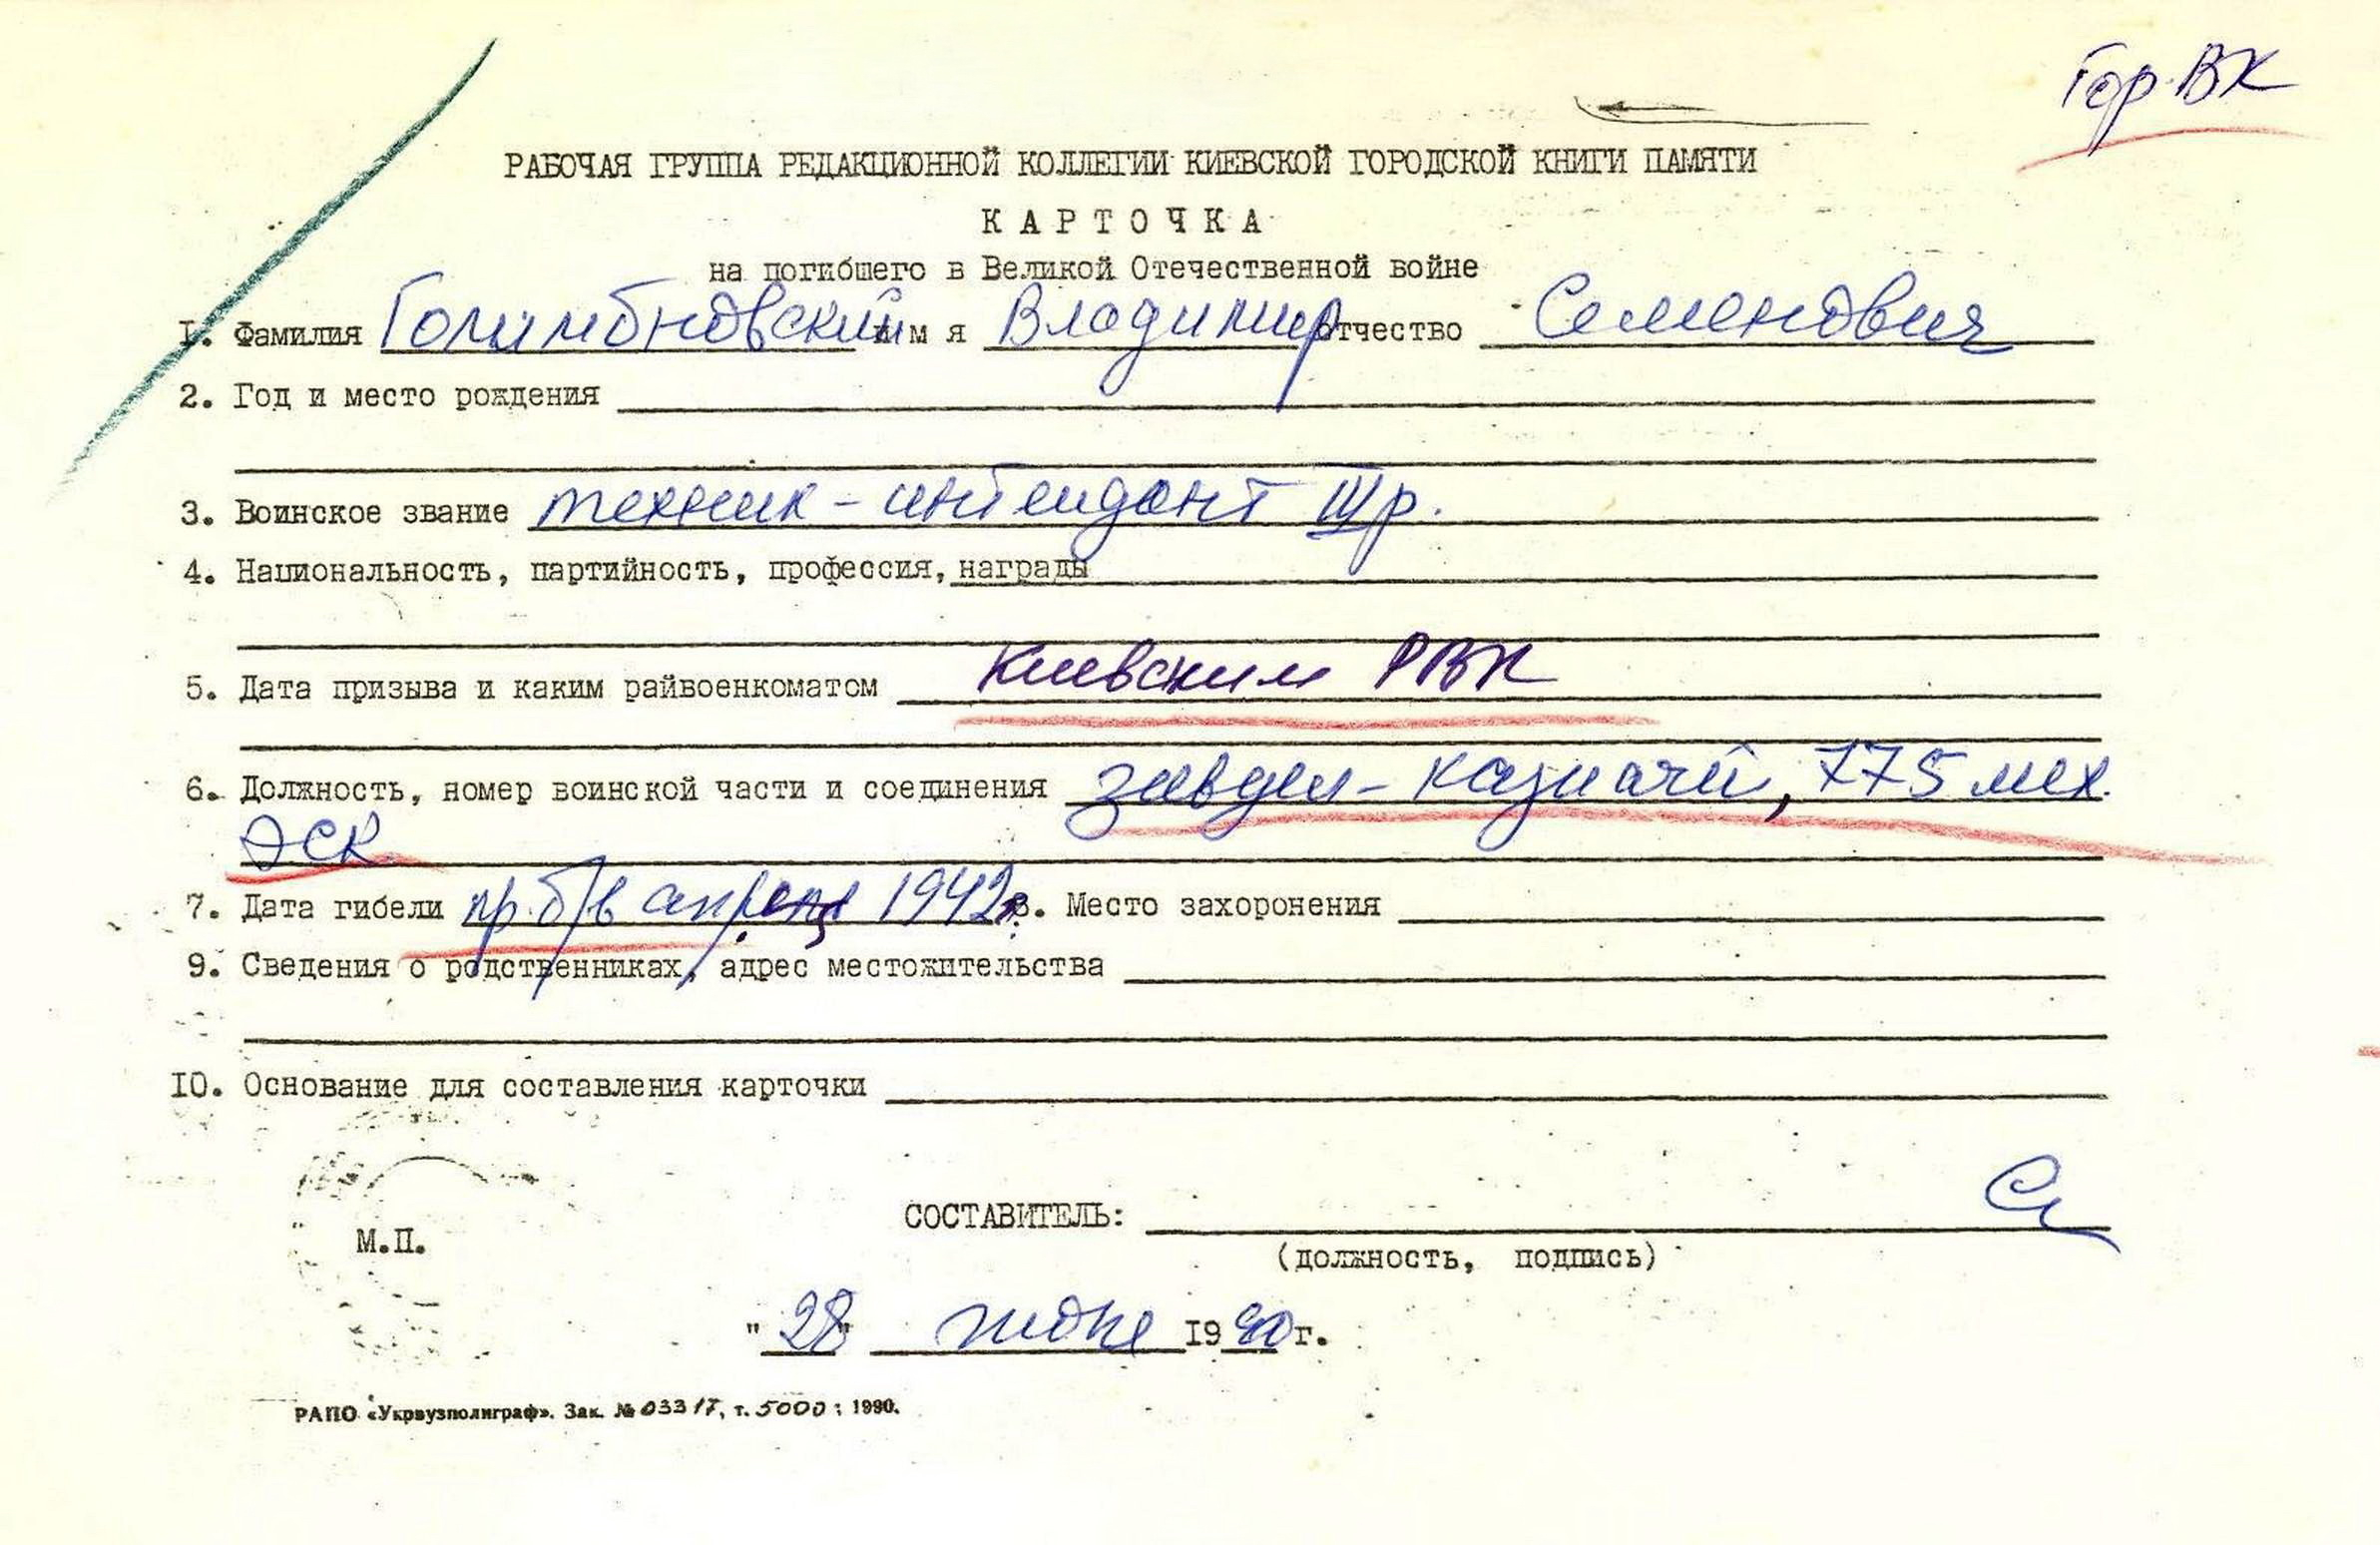 Гор. ВК
РАБОЧАЯ ГРУППА РЕДАКЦИОННОЙ КОЛЛЕГИИ КИЕВСКОЙ ГОРОДСКОЙ КНИГИ ПАМЯТИ
КАРТОЧКА
на погибшего в Великой Отечественной войне
1. Фамилия Голимбновский имя Владимир отчество Семенович
2. Год и место рождения
3. Воинское звание техник-интендант III р.
4. Национальность, партийность, профессия, награды
5. Дата призыва и каким райвоенкоматом Киевским РВК
6. Должность, номер воинской части и соединения завдел-казначей, 775 мех.
ЭСК
7. Дата гибели пр. б/в апрель 1942 8. Место захоронения
9. Сведения о родственниках, адрес местожительства
10. Основание для составления карточки
СОСТАВИТЕЛЬ:
М.П.
(должность, подпись)
"28" июня 1990 г.
РАПО «Укрвузполиграф». Зак. № 03317, т. 5000; 1990.